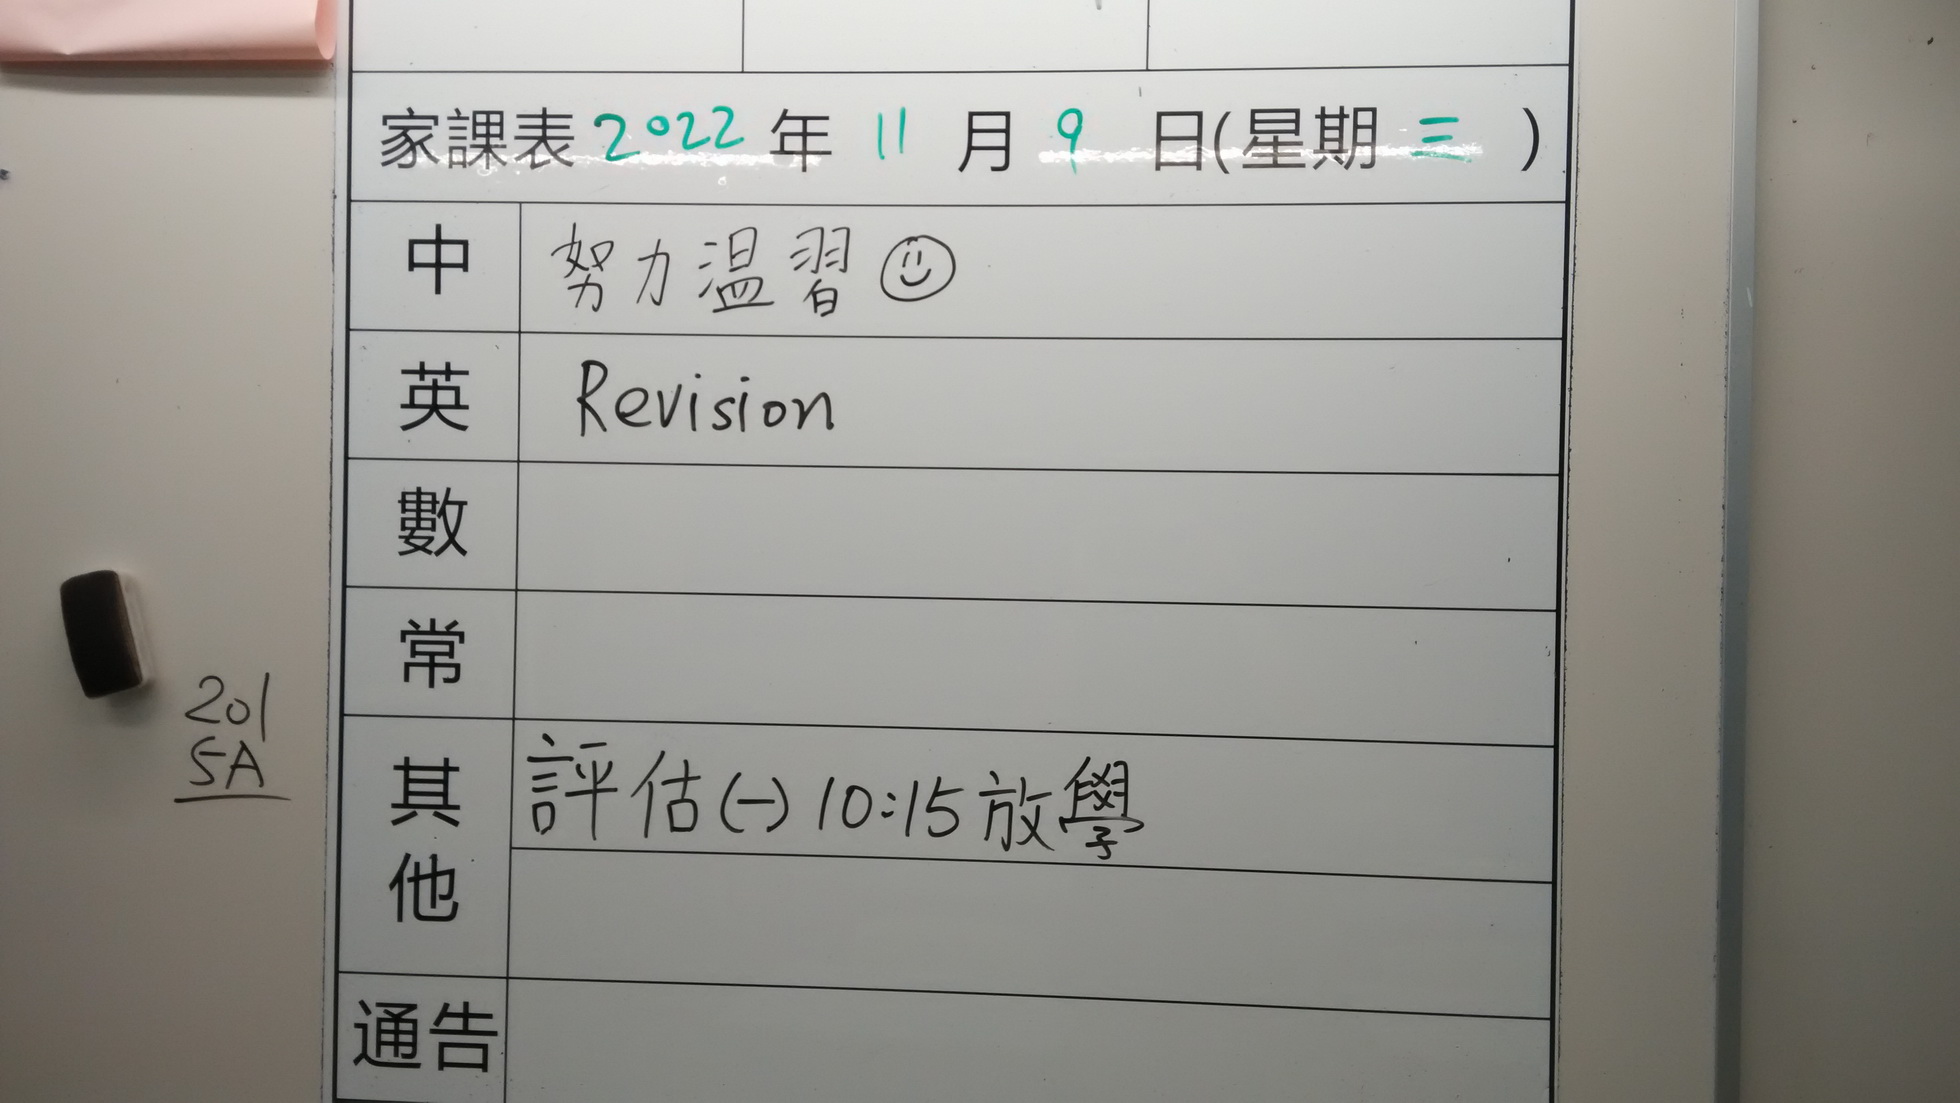 家課表 2022 年 11 月 9 日(星期 三 )
中 努力温習
英 Revision
數
常
其他 評估(一) 10:15 放學
通告
201
5A